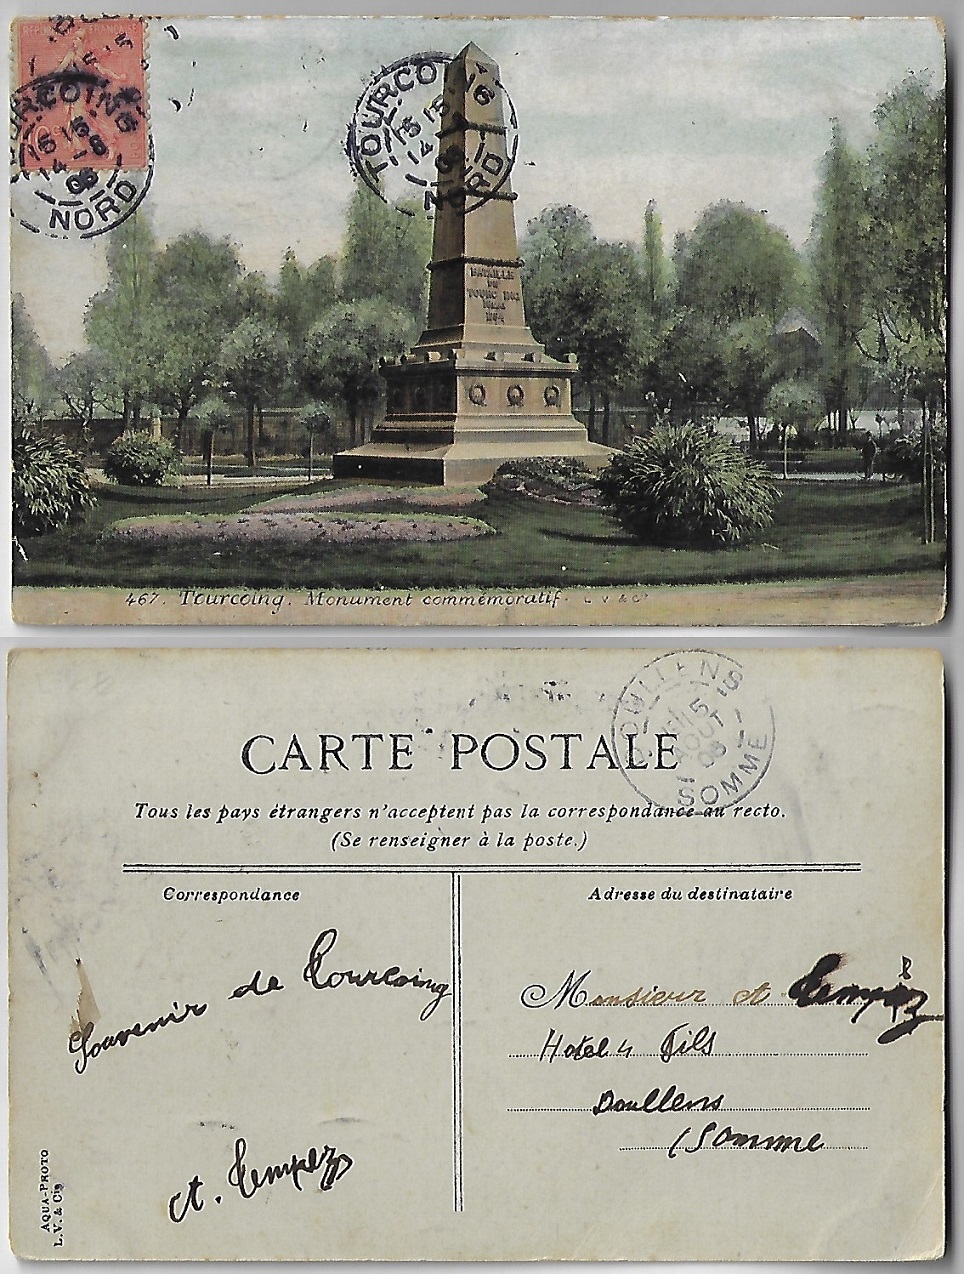 TOURCOING
15 15
14 - 8
06
NORD
TOURCO
15 15
14
NORD
BATAILLE
DE
TOURCOING
467. Tourcoing. Monument commémoratif. L V & Cie
DOULLENS
15
AOUT
06
SOMME
CARTE POSTALE
Tous les pays étrangers n'acceptent pas la correspondance au recto.
(Se renseigner à la poste.)
Correspondance
Adresse du destinataire
Souvenir de Tourcoing
A. Tempez
Monsieur A Tempez
Hotel 4 fils
Doullens
(Somme
AQUA-PHOTO
L.V. & Cie